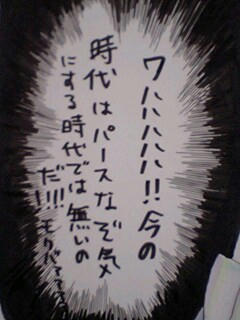 ワハハハハ!!今の
時代はパースなぞ気
にする時代では無いの
だ!!!モクバァァァ